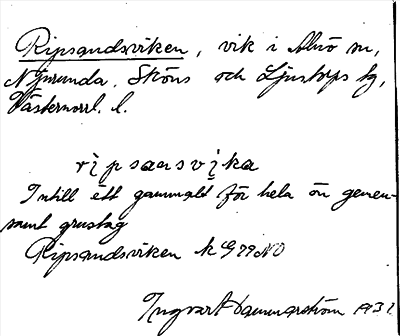 Ripsandsviken, vik i Alnö sn,
Njurunda, Sköns och Ljustorps tg,
Västernorrl. l.
ripsansvika
Intill ett gammalt för hela ön gemen-
samt grustag
Ripsandsviken k G 79 NO
Ingvart Hammarström 1931.